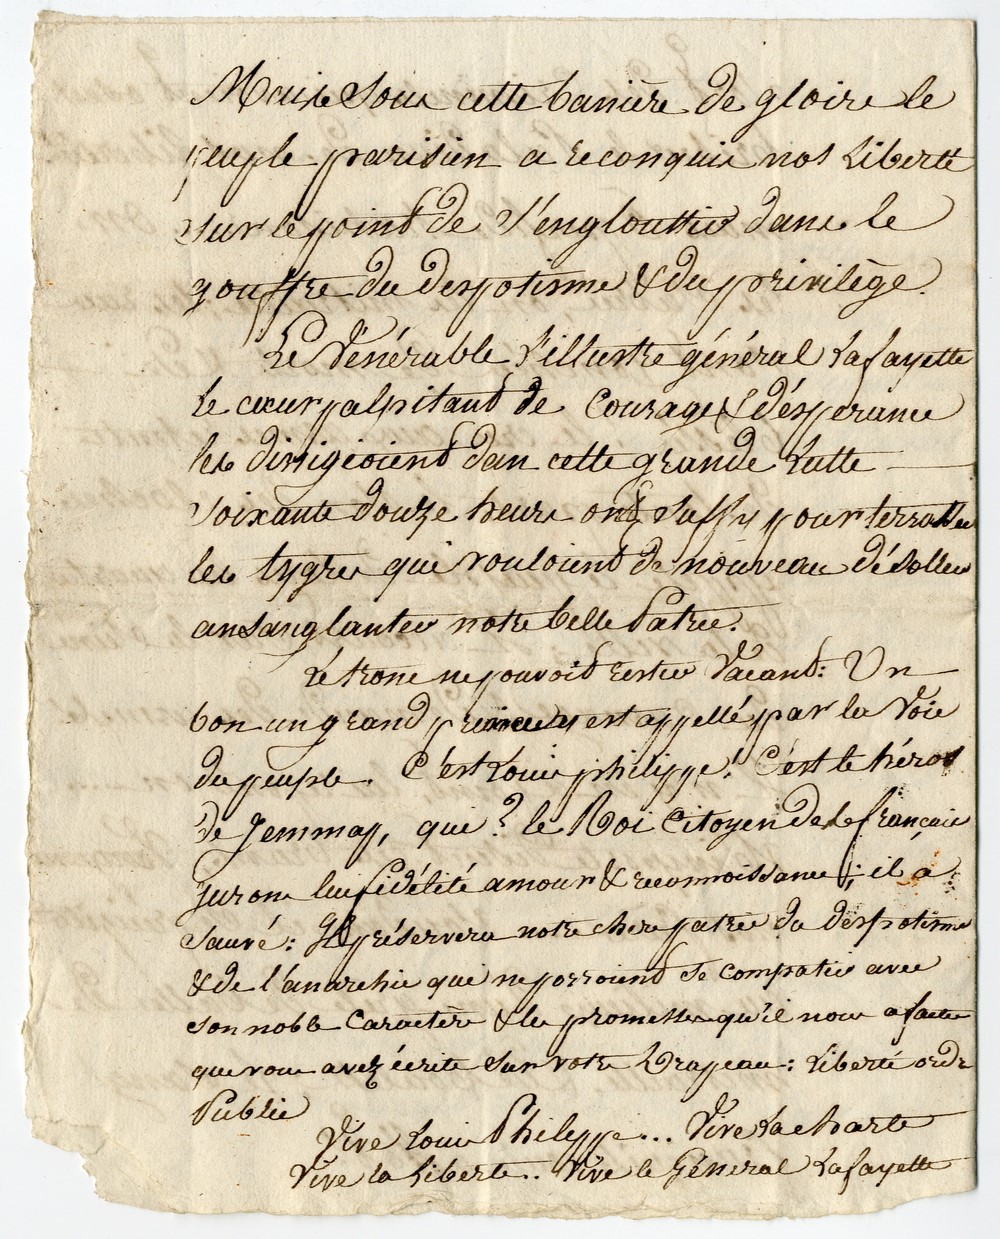 Mais sous cette banière de gloire le
peuple parisien a reconquis nos Liberté
sur le point de s'englouttir dans le
gouffre du despotisme & du privilège.
Le Vénérable l'illustre général Lafayette
le cœur palpitand de courage & désperance
les dirrigeoiend dan cette grande Lutte
soixante douze heurs ond suffy pour terrasser
les tygres qui vouloiend de nouveau désoller
ansanglanter notre belle Patrie.
Le trone ne pouvoid rester Vacand: Un
bon un grand prince y est appellé par la Voie
du peuple. C'est Louis philippe! C'est le héros
de Jemmap, qui? le Roi Citoyen des français
jurons lui fidélité amour & reconnoissance; il a
sauvé: Il préservera notre chere patrie du despotisme
& de l'anarchie qui ne porroiend se compatir avec
son noble Caractère & les promesses qu'il nous a faite
que vous avez écrite sur votre Drapeau: Liberté ordre
Public
Vive Louis Philippe... Vive La charte
Vive la Liberte.. Vive le Général Lafayette